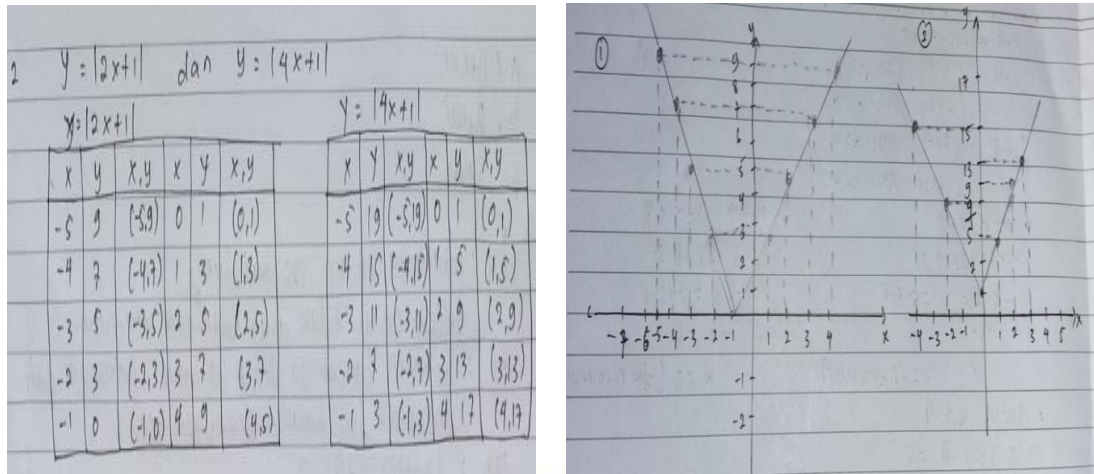 2 y = |2x+1| dan y = |4x+1|
y=|2x+1|
x y x,y x y x,y
-5 9 (-5,9) 0 1 (0,1)
-4 7 (-4,7) 1 3 (1,3)
-3 5 (-3,5) 2 5 (2,5)
-2 3 (-2,3) 3 7 (3,7
-1 0 (-1,0) 4 9 (4,5)
y = |4x+1|
x y x,y x y x,y
-5 19 (-5,19) 0 1 (0,1)
-4 15 (-4,15) 1 5 (1,5)
-3 11 (-3,11) 2 9 (2,9)
-2 7 (-2,7) 3 13 (3,13)
-1 3 (-1,3) 4 17 (4,17
①
y
9
8
7
6
5
4
3
2
1
-7 -6 -5 -4 -3 -2 -1 1 2 3 4 x
-1
-2
②
y
17
15
13
9
5
2
1
-4 -3 -2 -1 1 2 3 4 5 x